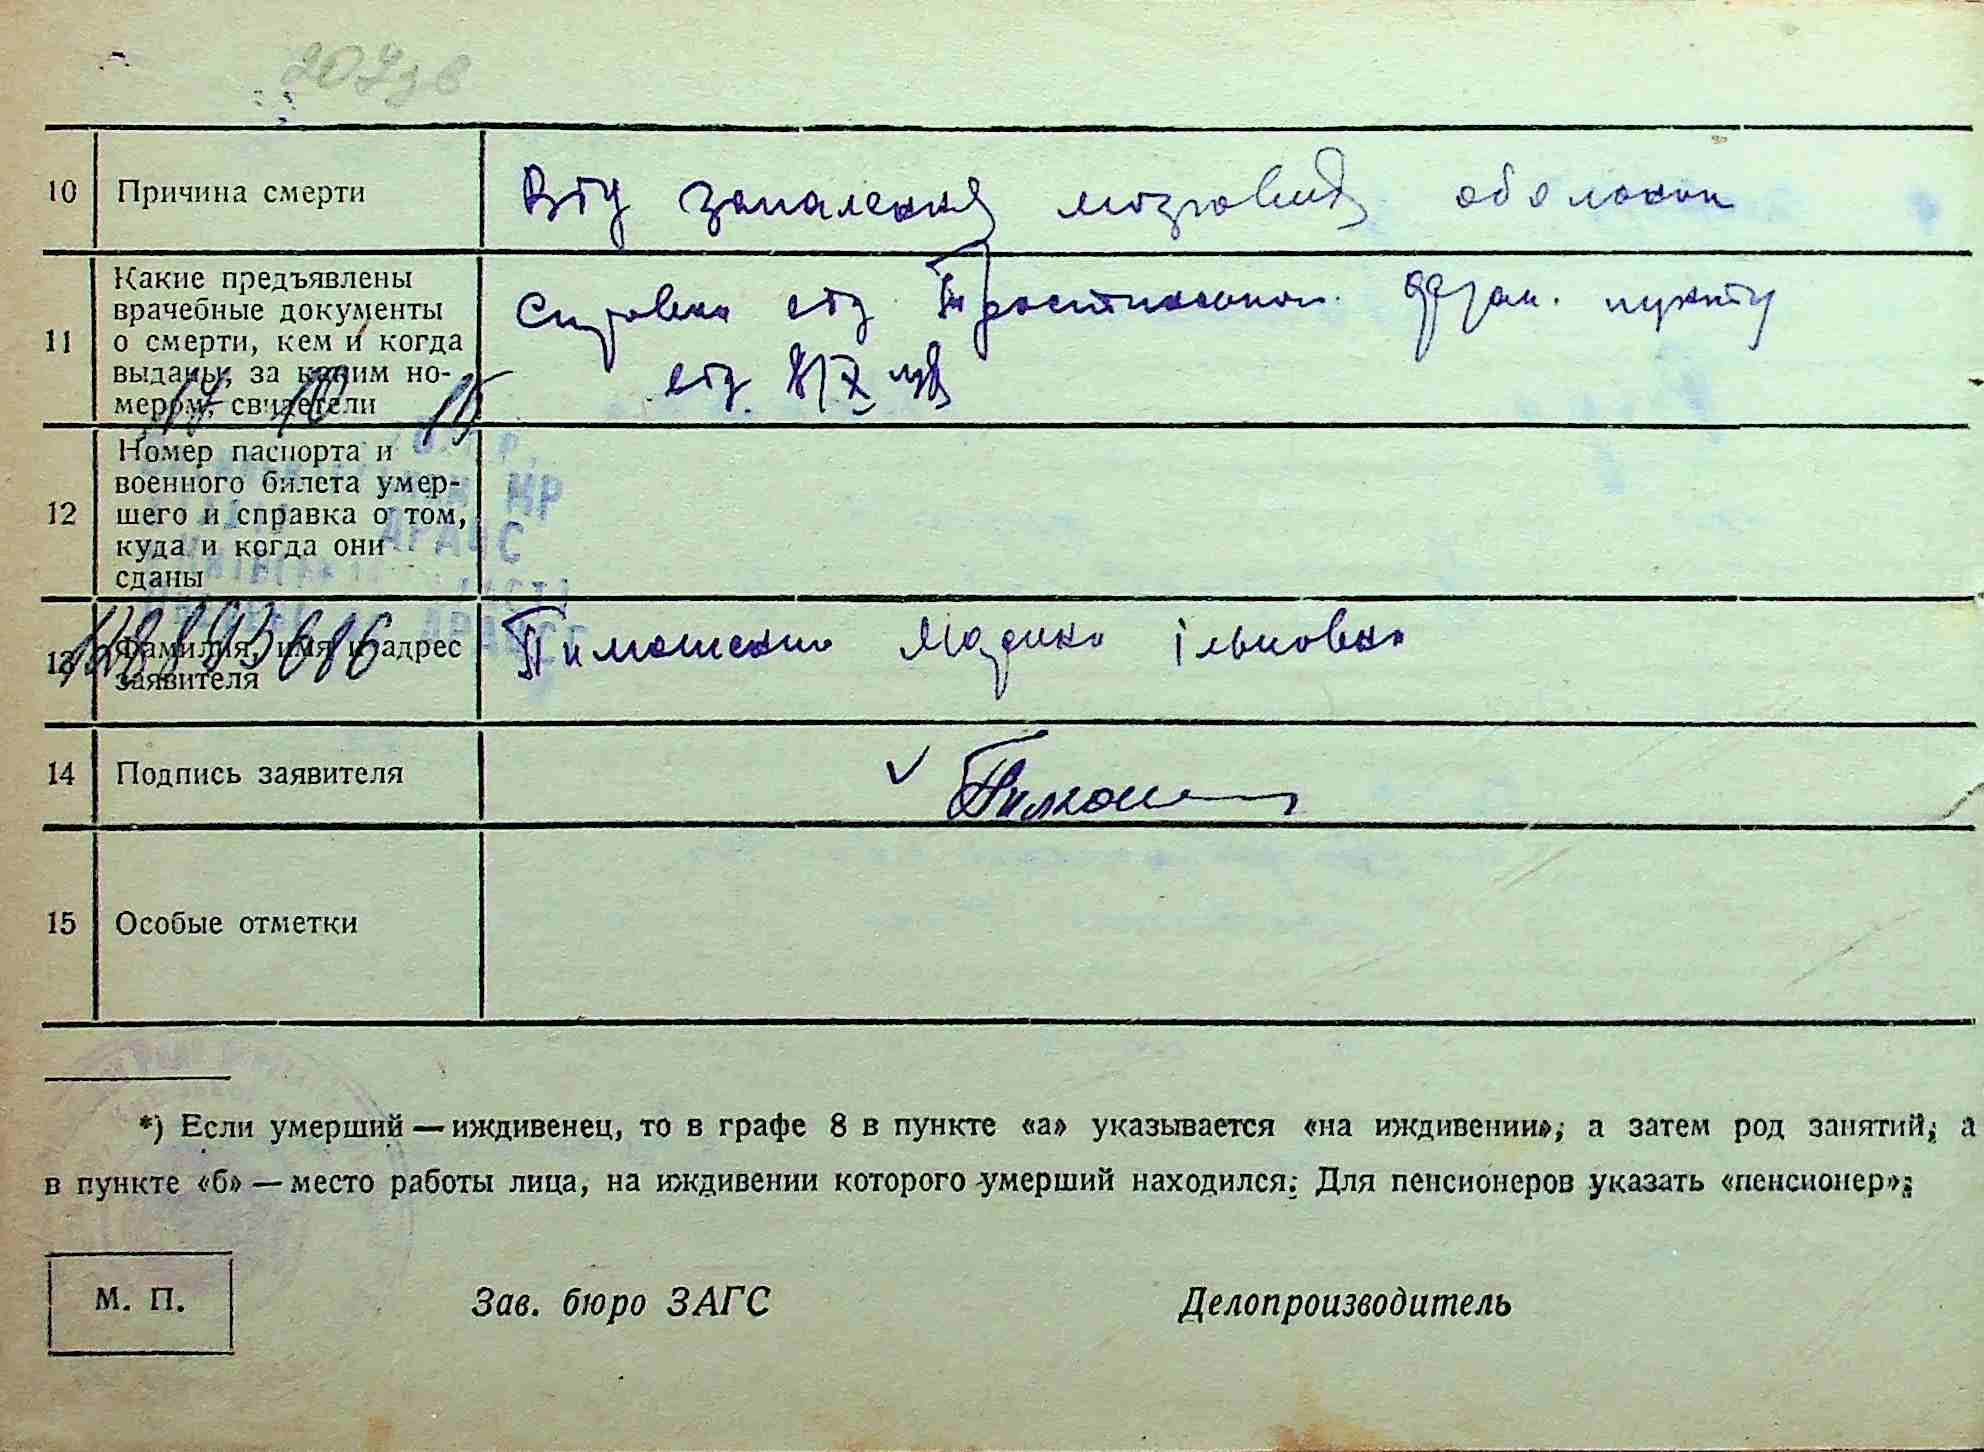 10 Причина смерти
Від запалення мозгових оболонок
11 Какие предъявлены
врачебные документы
о смерти, кем и когда
выданы, за каким но-
мером, свидетели
Справка від пункту
від 8/X
17 10 15
12 Номер паспорта и
военного билета умер-
шего и справка о том,
куда и когда они
сданы
13 Фамилия, имя и адрес
заявителя
Тимошенко Ільковна
14 Подпись заявителя
15 Особые отметки
*) Если умерший — иждивенец, то в графе 8 в пункте «а» указывается «на иждивении»; а затем род занятий; а
в пункте «б» — место работы лица, на иждивении которого умерший находился; Для пенсионеров указать «пенсионер»;
М. П. Зав. бюро ЗАГС Делопроизводитель